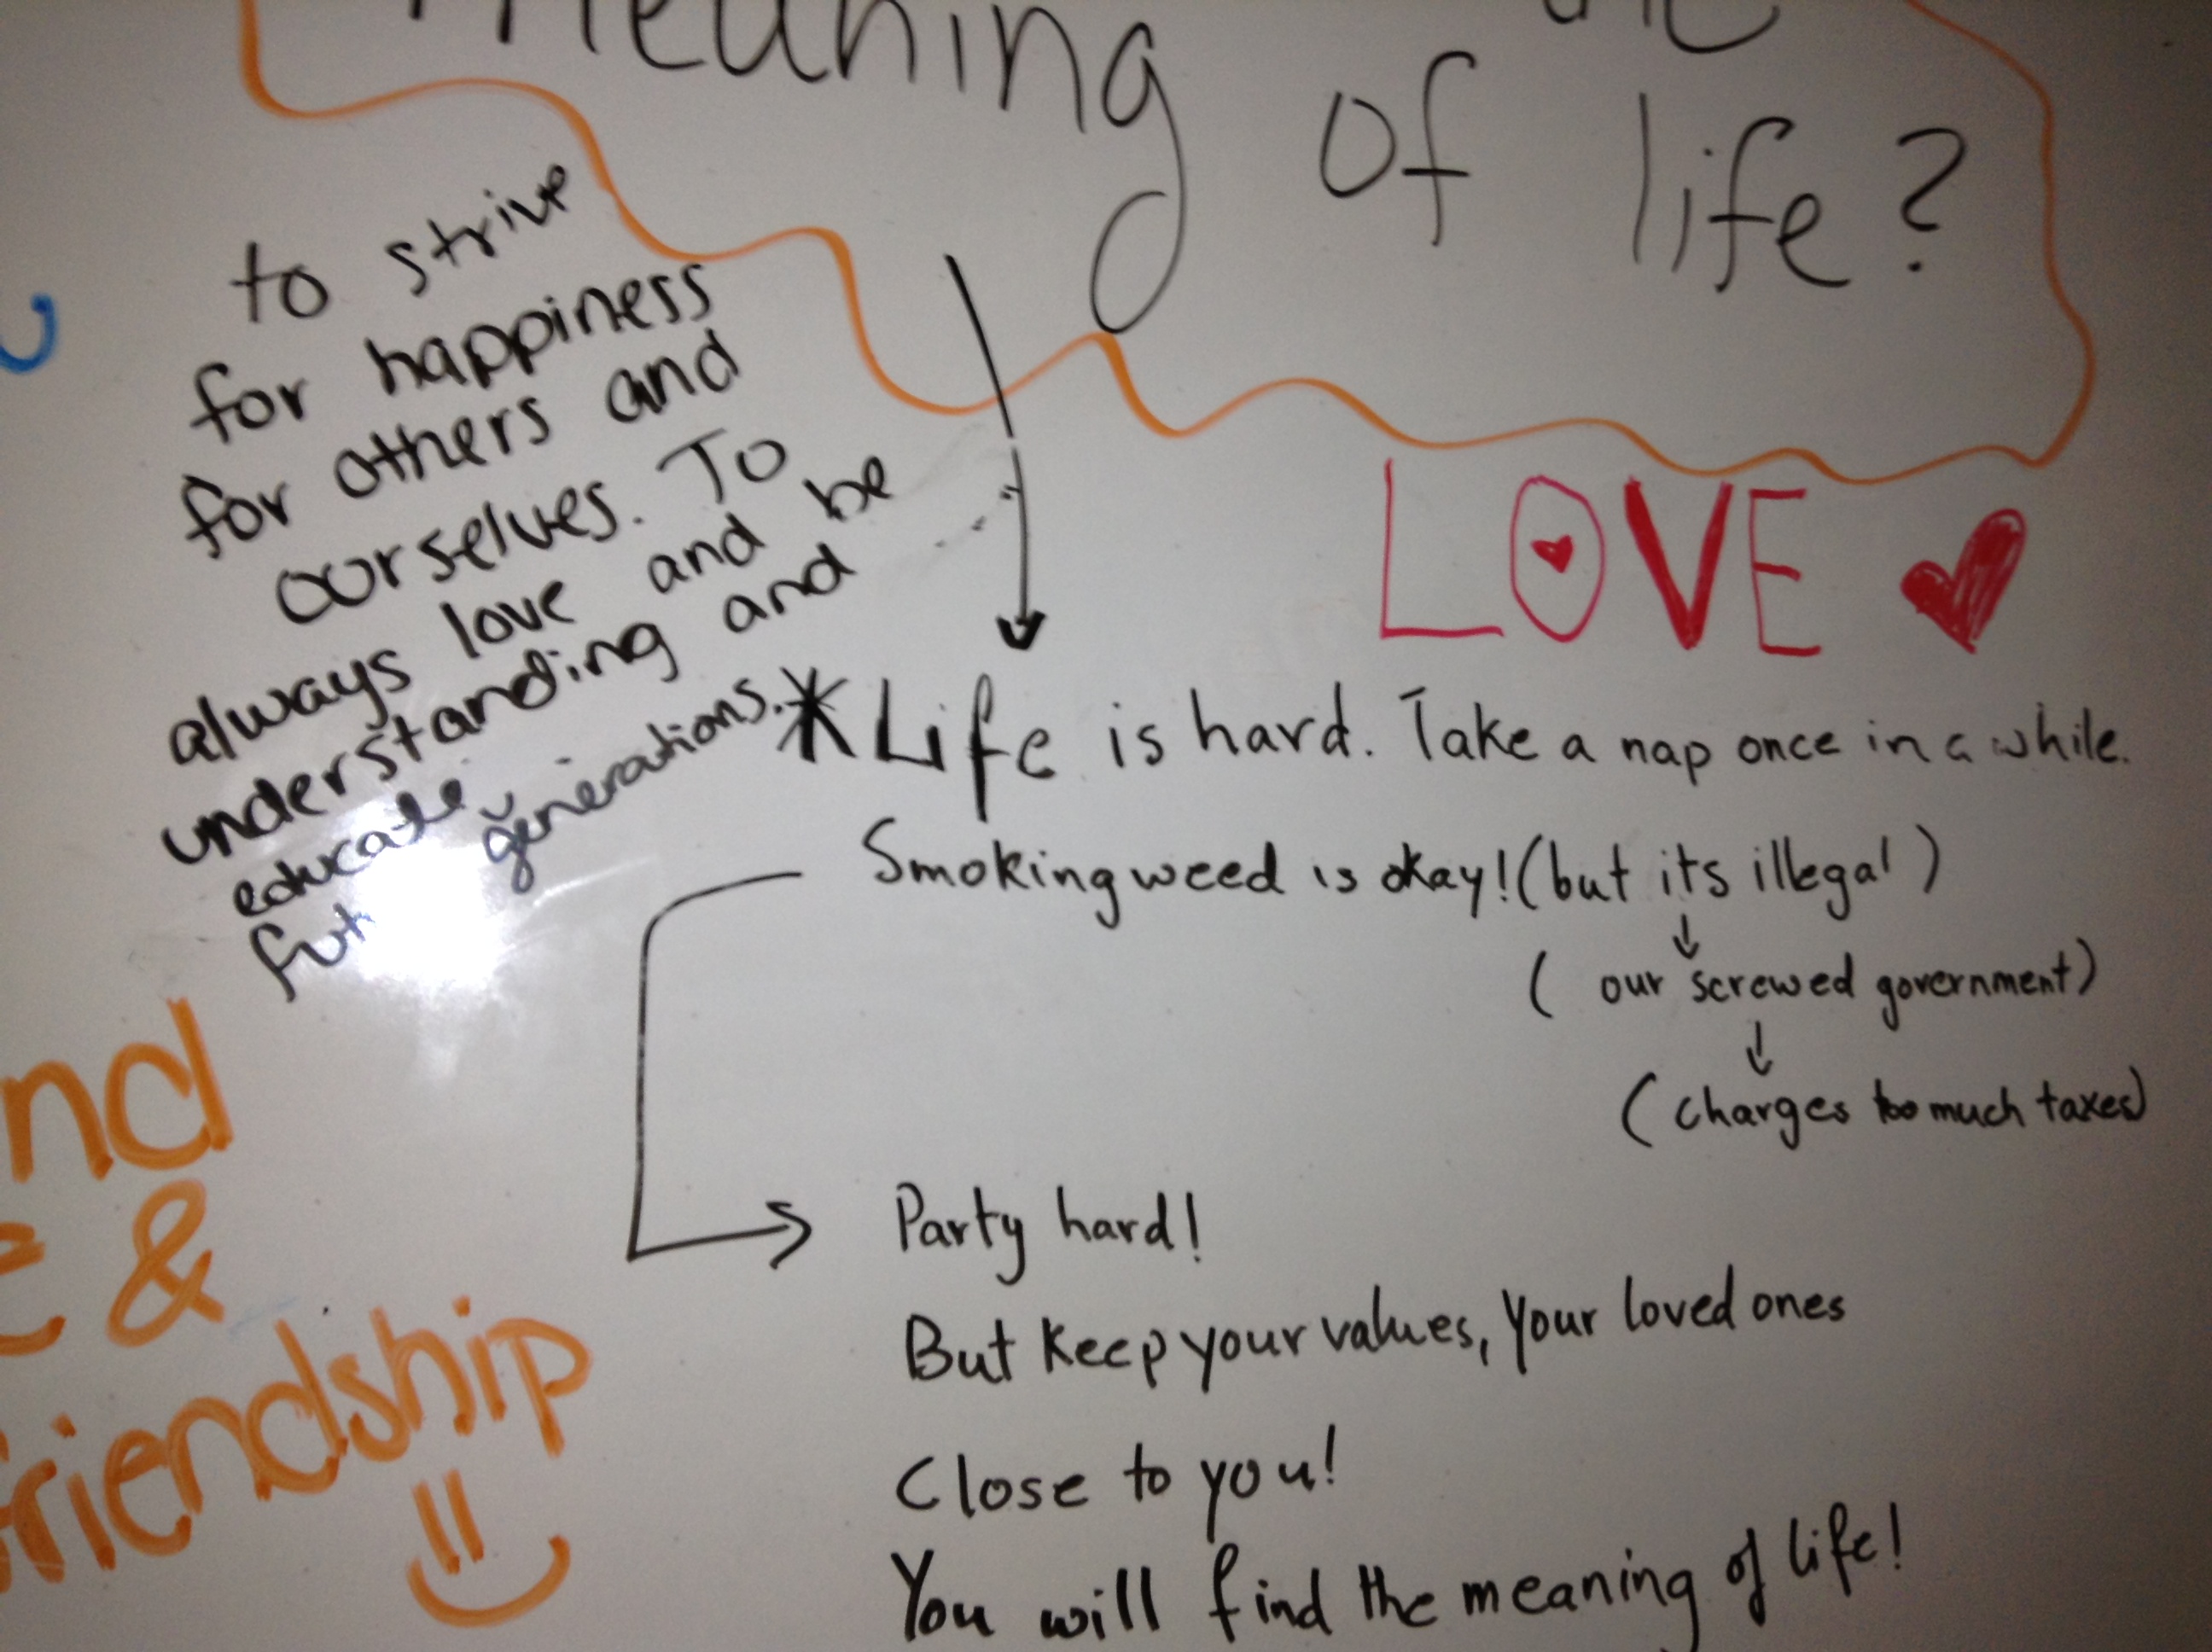 meaning
of life?
to strive
for happiness
for others and
ourselves. To
always love and be
understanding and
educate
generations.
LOVE
*Life is hard. Take a nap once in a while.
Smoking weed is okay! (but its illegal)
( our screwed government)
(charges too much taxes)
Party hard!
But keep your values, your loved ones
Close to you!
You will find the meaning of life!
&
friendship